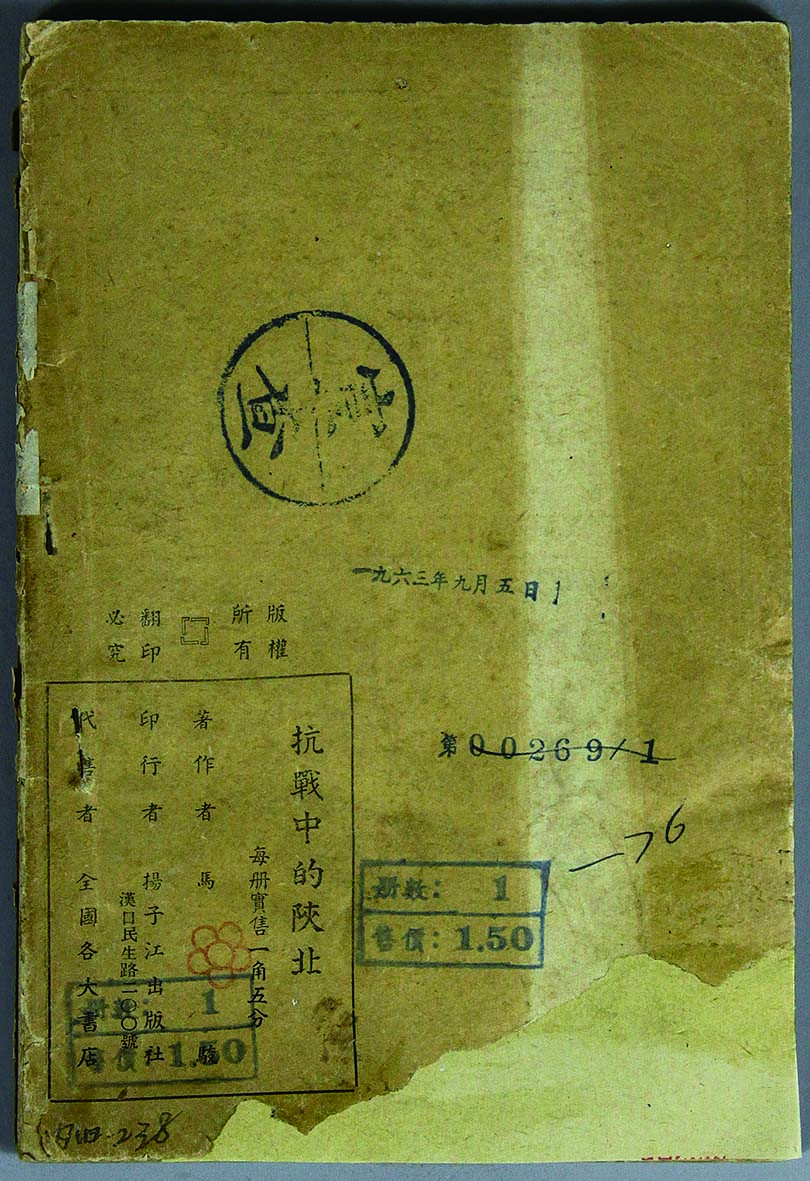 一九六三年九月五日
版權
所有
翻印
必究
抗戰中的陝北
每册實售一角五分
著作者 馬駿
印行者 揚子江出版社
漢口民生路二〇〇號
代售者 全國各大書店
第00269/1
册数: 1
售價: 1.50
册数: 1
售價: 1.50